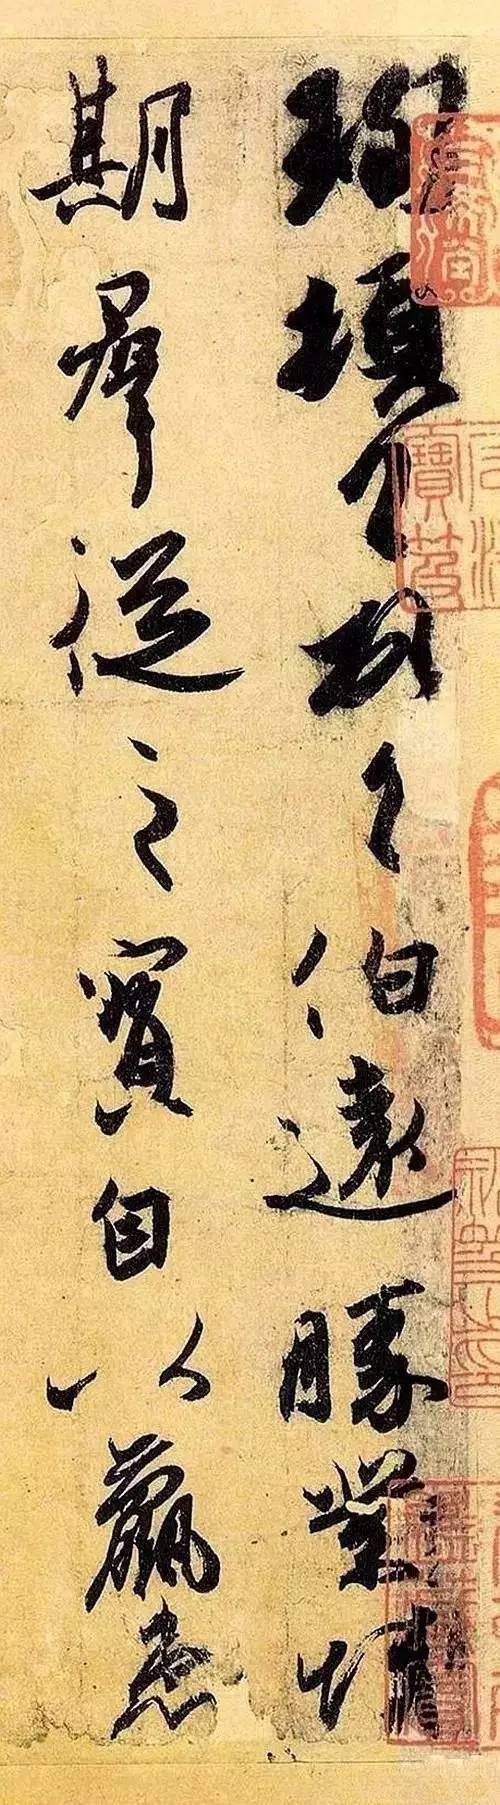 珣頓首頓首伯遠勝業情
期羣從之寶自以羸患